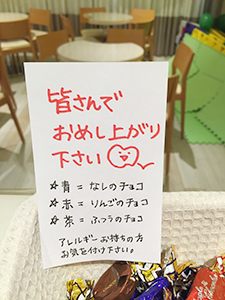 皆さんで
おめし上がり
下さい
☆青 = なしのチョコ
☆赤 = りんごのチョコ
☆茶 = ふつうのチョコ
アレルギーお持ちの方
お気を付け下さい。